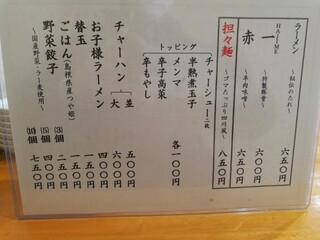 ラーメン
一 HAJIME ～秘伝のたれ～ 六五〇円
～特製豚骨～ 六〇〇円
赤 ～辛肉味噌～ 六五〇円
担々麺 ～ゴマたっぷり四川風～ 八五〇円
トッピング
チャーシュー二枚
半熟煮玉子
メンマ
辛子高菜
辛もやし
各一〇〇円
チャーハン 並 五〇〇円
大 六〇〇円
お子様ラーメン 四〇〇円
替玉 一五〇円
ごはん(島根県産つや姫) 一五〇円
野菜餃子 ⑶個 二五〇円
～国産野菜・ラー麦使用～ ⑸個 四〇〇円
⑽個 七五〇円